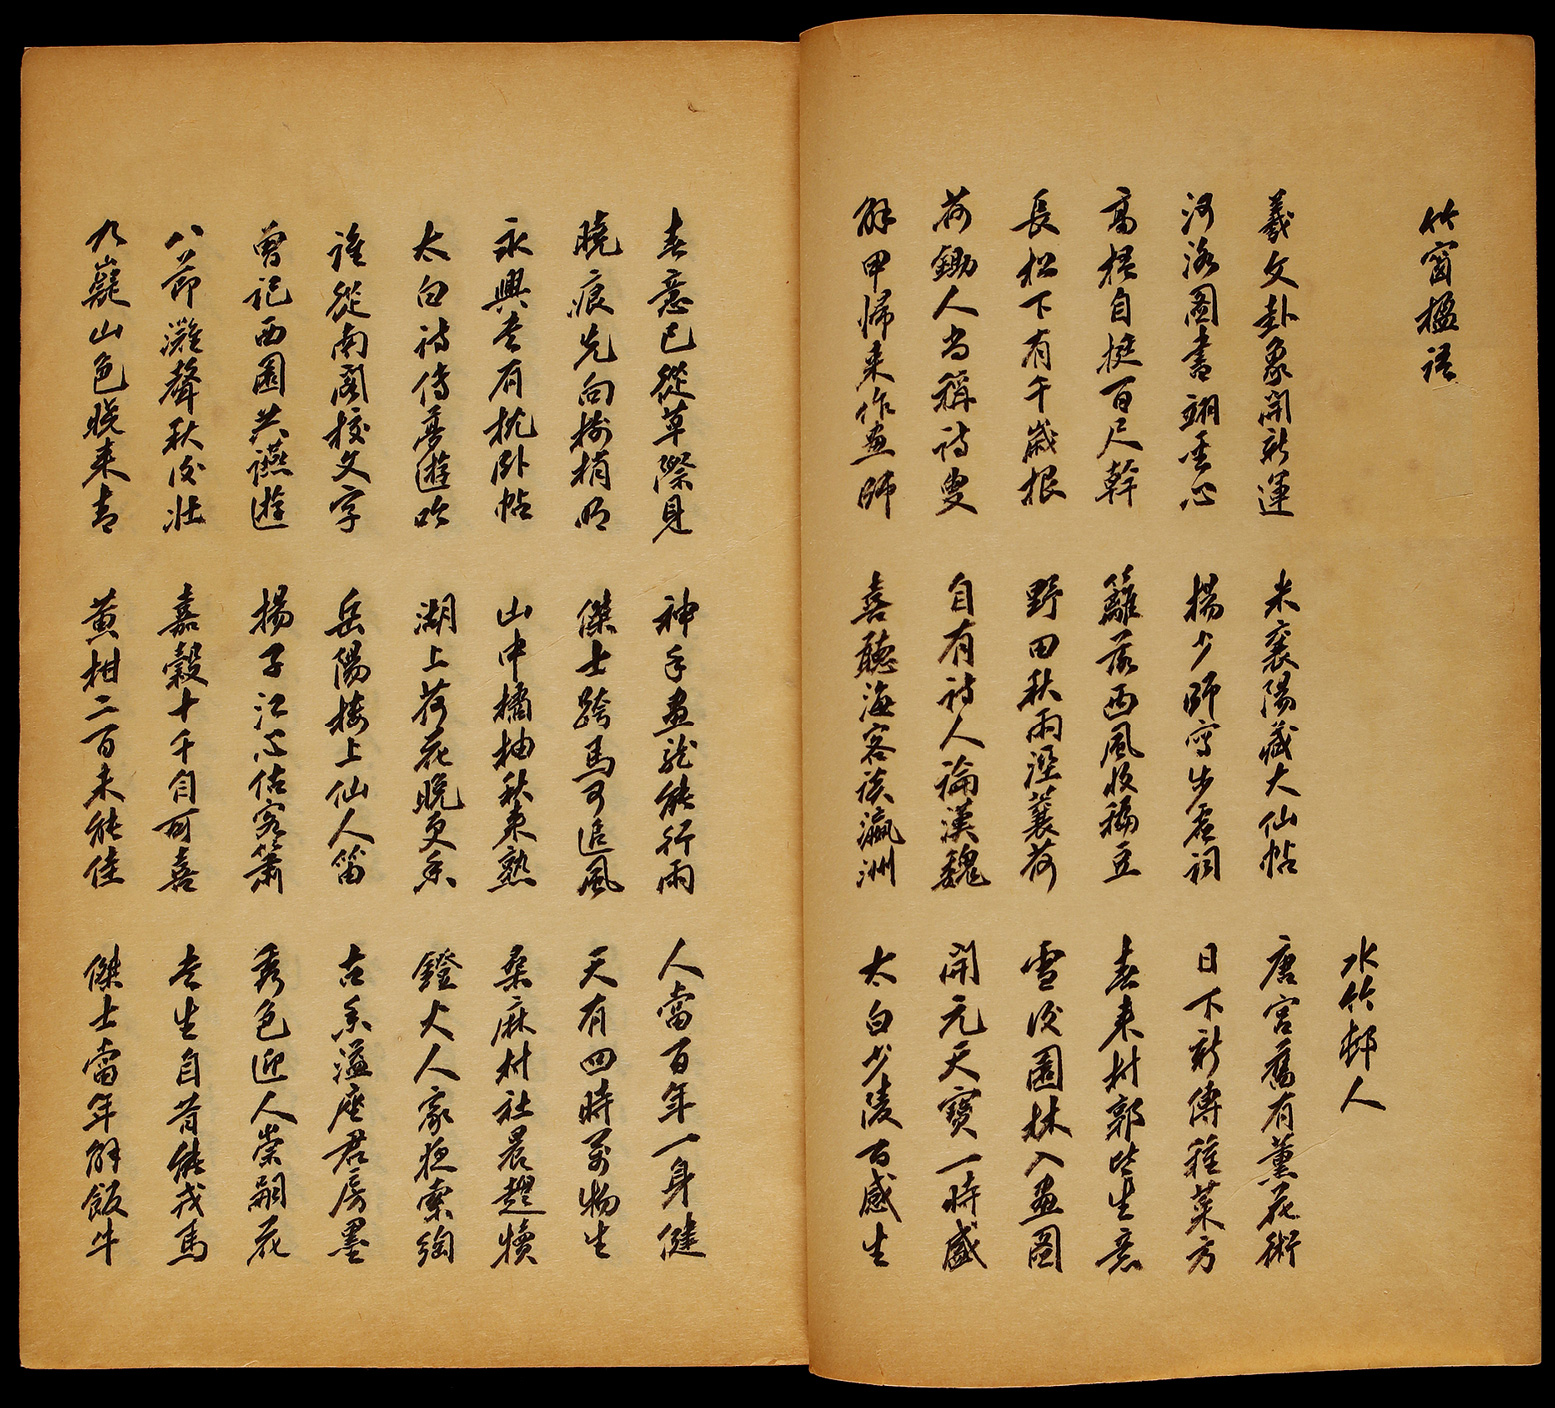 竹窗楹語
水竹邨人
羲文卦象開新運 米襄陽藏大仙帖 唐宮舊有薰花術
河洛圖書翊聖心 楊少師寫步虛詞 日下新傳種菜方
高梧自挺百尺幹 籬落西風收稨豆 春來村郭皆生意
長松下有千歲根 野田秋雨溼蓑荷 雪後園林入畫圖
荷鋤人尚稱詩叟 自有詩人論漢魏 開元天寶一時盛
解甲歸來作畫師 喜聽海客談瀛洲 太白少陵百感生
春意已從草際見 神手畫龍能行雨 人當百年一身健
曉痕先向樹梢明 傑士跨馬可追風 天有四時萬物生
永興書有枕臥帖 山中橘柚秋來熟 桑麻村社晨趨犢
太白詩傳夢遊吟 湖上荷花晚更香 鐙火人家夜索綯
誰從南閣校文字 岳陽樓上仙人笛 古香溢座君房墨
曾記西園共讌遊 揚子江心估客簫 秀色迎人崇嗣花
八節灘聲秋後壯 嘉穀十千自可喜 書生自昔能戎馬
九嶷山色晚來青 黃柑二百未能佳 傑士當年解飯牛